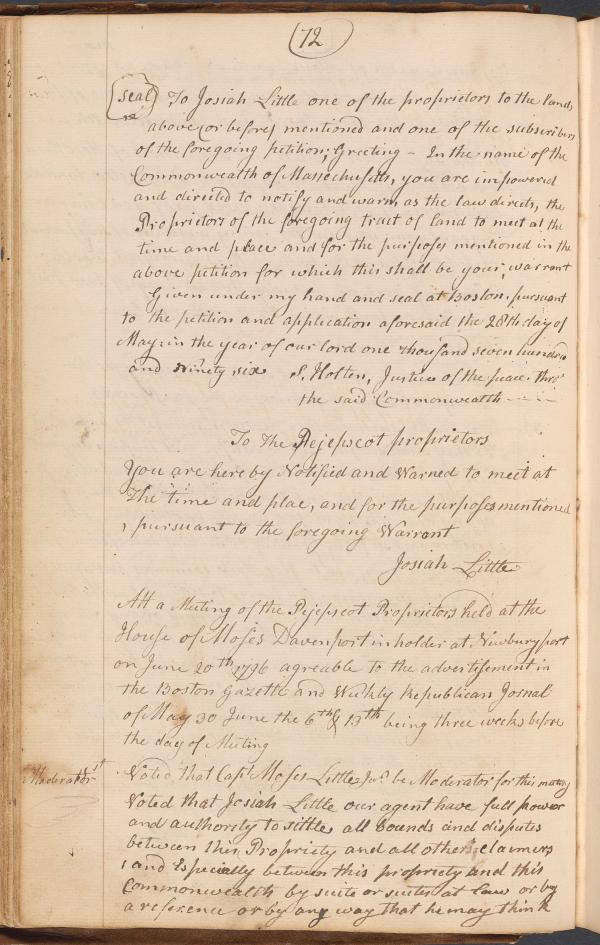 72
(seal) To Josiah Little one of the proprietors to the lands
above (or before) mentioned and one of the subscribers
of the foregoing petition; Greeting - In the name of the
Commonwealth of Massechusetts, you are impowered
and directed to notify and warn, as the law directs, the
Proprietors of the foregoing tract of land to meet at the
time and place and for the purposes mentioned in the
above petition for which this shall be your, warrant
Given under my hand and seal at Boston. pursuant
to the petition and application aforesaid the 28th day of
May: in the year of our lord one thousand seven hundred
and Ninety six S. Holten, Justice of the peace. thro'
the said Commonwealth
To the Pejepscot proprietors
You are hereby Notified and Warned to meet at
The time and plac, and for the purposes mentioned
, pursuant to the foregoing Warrant
Josiah Little
Att a Meeting of the Pejepscot Proprietors held at the
House of Moses Davenport inholder at Newburyport
on June 20th 1796 agreable to the advertisement in
the Boston Gazette and Weekly Republican Josnal
of May 30 June the 6th & 13th being three weeks before
the day of Meeting
Moderator 1st Voted that Capt. Moses Little Junr. be Moderator for this meeting
Voted that Josiah Little our agent have full power
and authority to settle all bounds and disputes
between this Propriety and all others, claimers
, and Especially between this propriety and this
Commonwealth by suite or suites at law or by
a reference or by any way that he may think